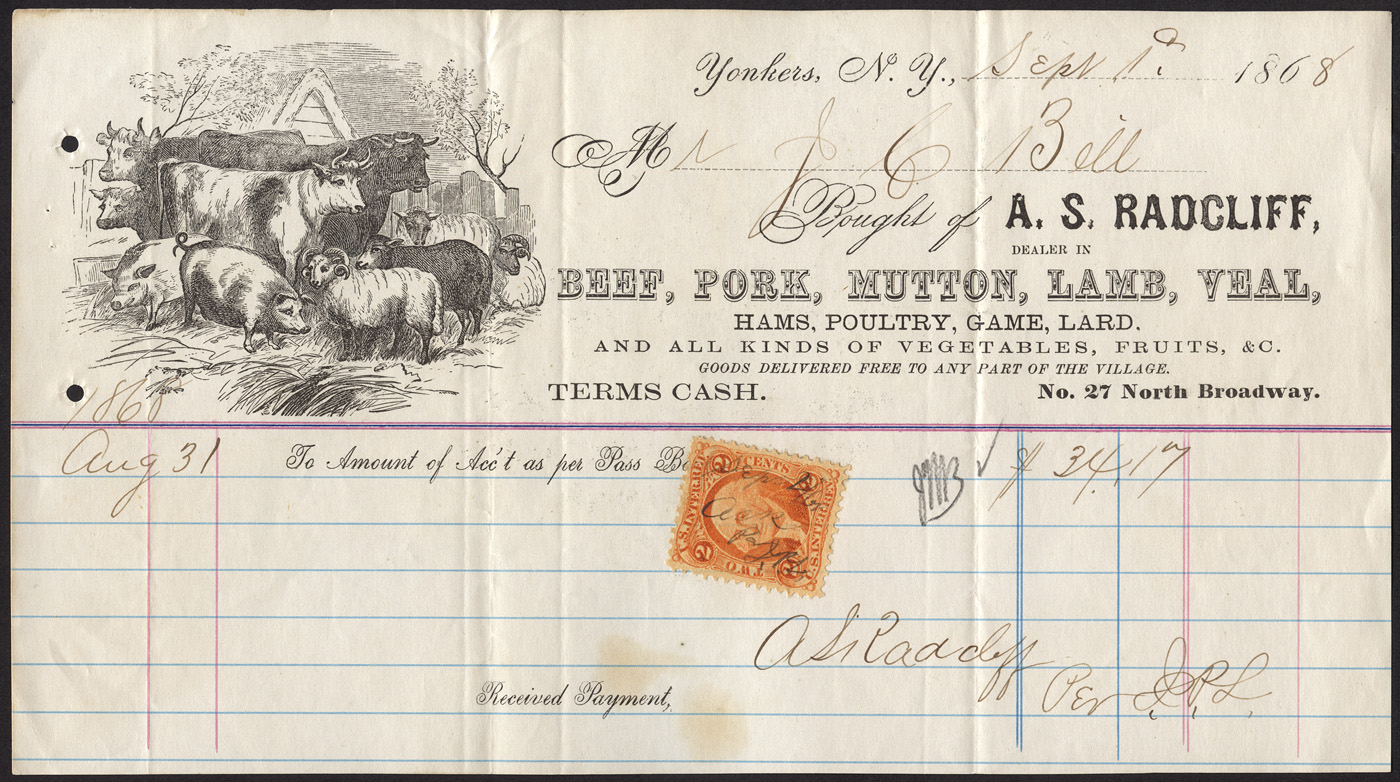 Yonkers, N. Y., Sept 1st 1868
Mr J C Bill
Bought of A. S. RADCLIFF,
DEALER IN
BEEF, PORK, MUTTON, LAMB, VEAL,
HAMS, POULTRY, GAME, LARD.
AND ALL KINDS OF VEGETABLES, FRUITS, &C.
GOODS DELIVERED FREE TO ANY PART OF THE VILLAGE.
TERMS CASH. No. 27 North Broadway.
1868
Aug 31 To Amount of Acc't as per Pass Bo $ 34.17
2 CENTS 2
U.S. INTER. REV. U.S. INTER. REV.
2 TWO 2
A S Radcliff
Per J. P. L.
Received Payment,